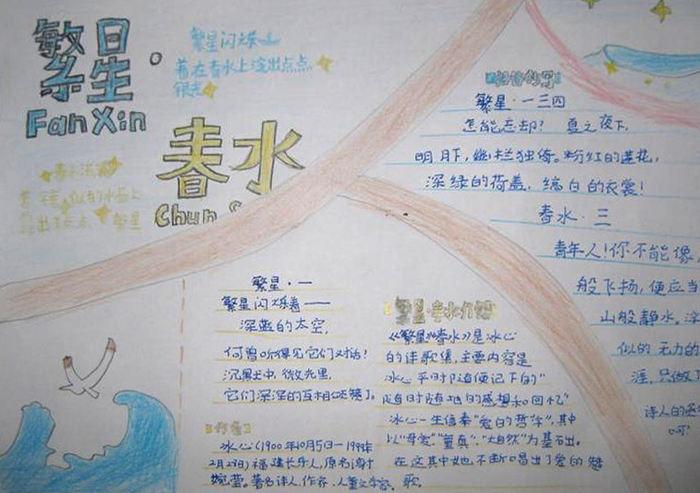 繁星·
Fan Xin
繁星闪烁
着在春水上淀出点点
春水
Chun
春水
繁星
好诗的写
繁星·一三四
怎能忘却？夏之夜下，
明月下，幽栏独倚。粉红的莲花，
深绿的荷盖，缟白的衣裳！
春水·三
青年人！你不能像
般飞扬，便应当
山般静水。
似的无力的
涯，只做了
诗人的
繁星·一
繁星闪烁着——
深蓝的太空，
何曾听得见它们对话！
沉默中，微光里，
它们深深的互相颂赞了。
作者
冰心（1900年10月5日—1999年
2月28日）福建长乐人，原名谢
婉莹。著名诗人、作家、儿童文学家。
繁星·春水介绍
《繁星》《春水》是冰心
的诗歌集，主要内容是
冰心平时随便记下的"
随时随地的感想和回忆"
冰心一生信奉"爱的哲学"，其中
以"母爱""童真"，"大自然"为基石出。
在这其中她不断唱出了爱的赞
歌。